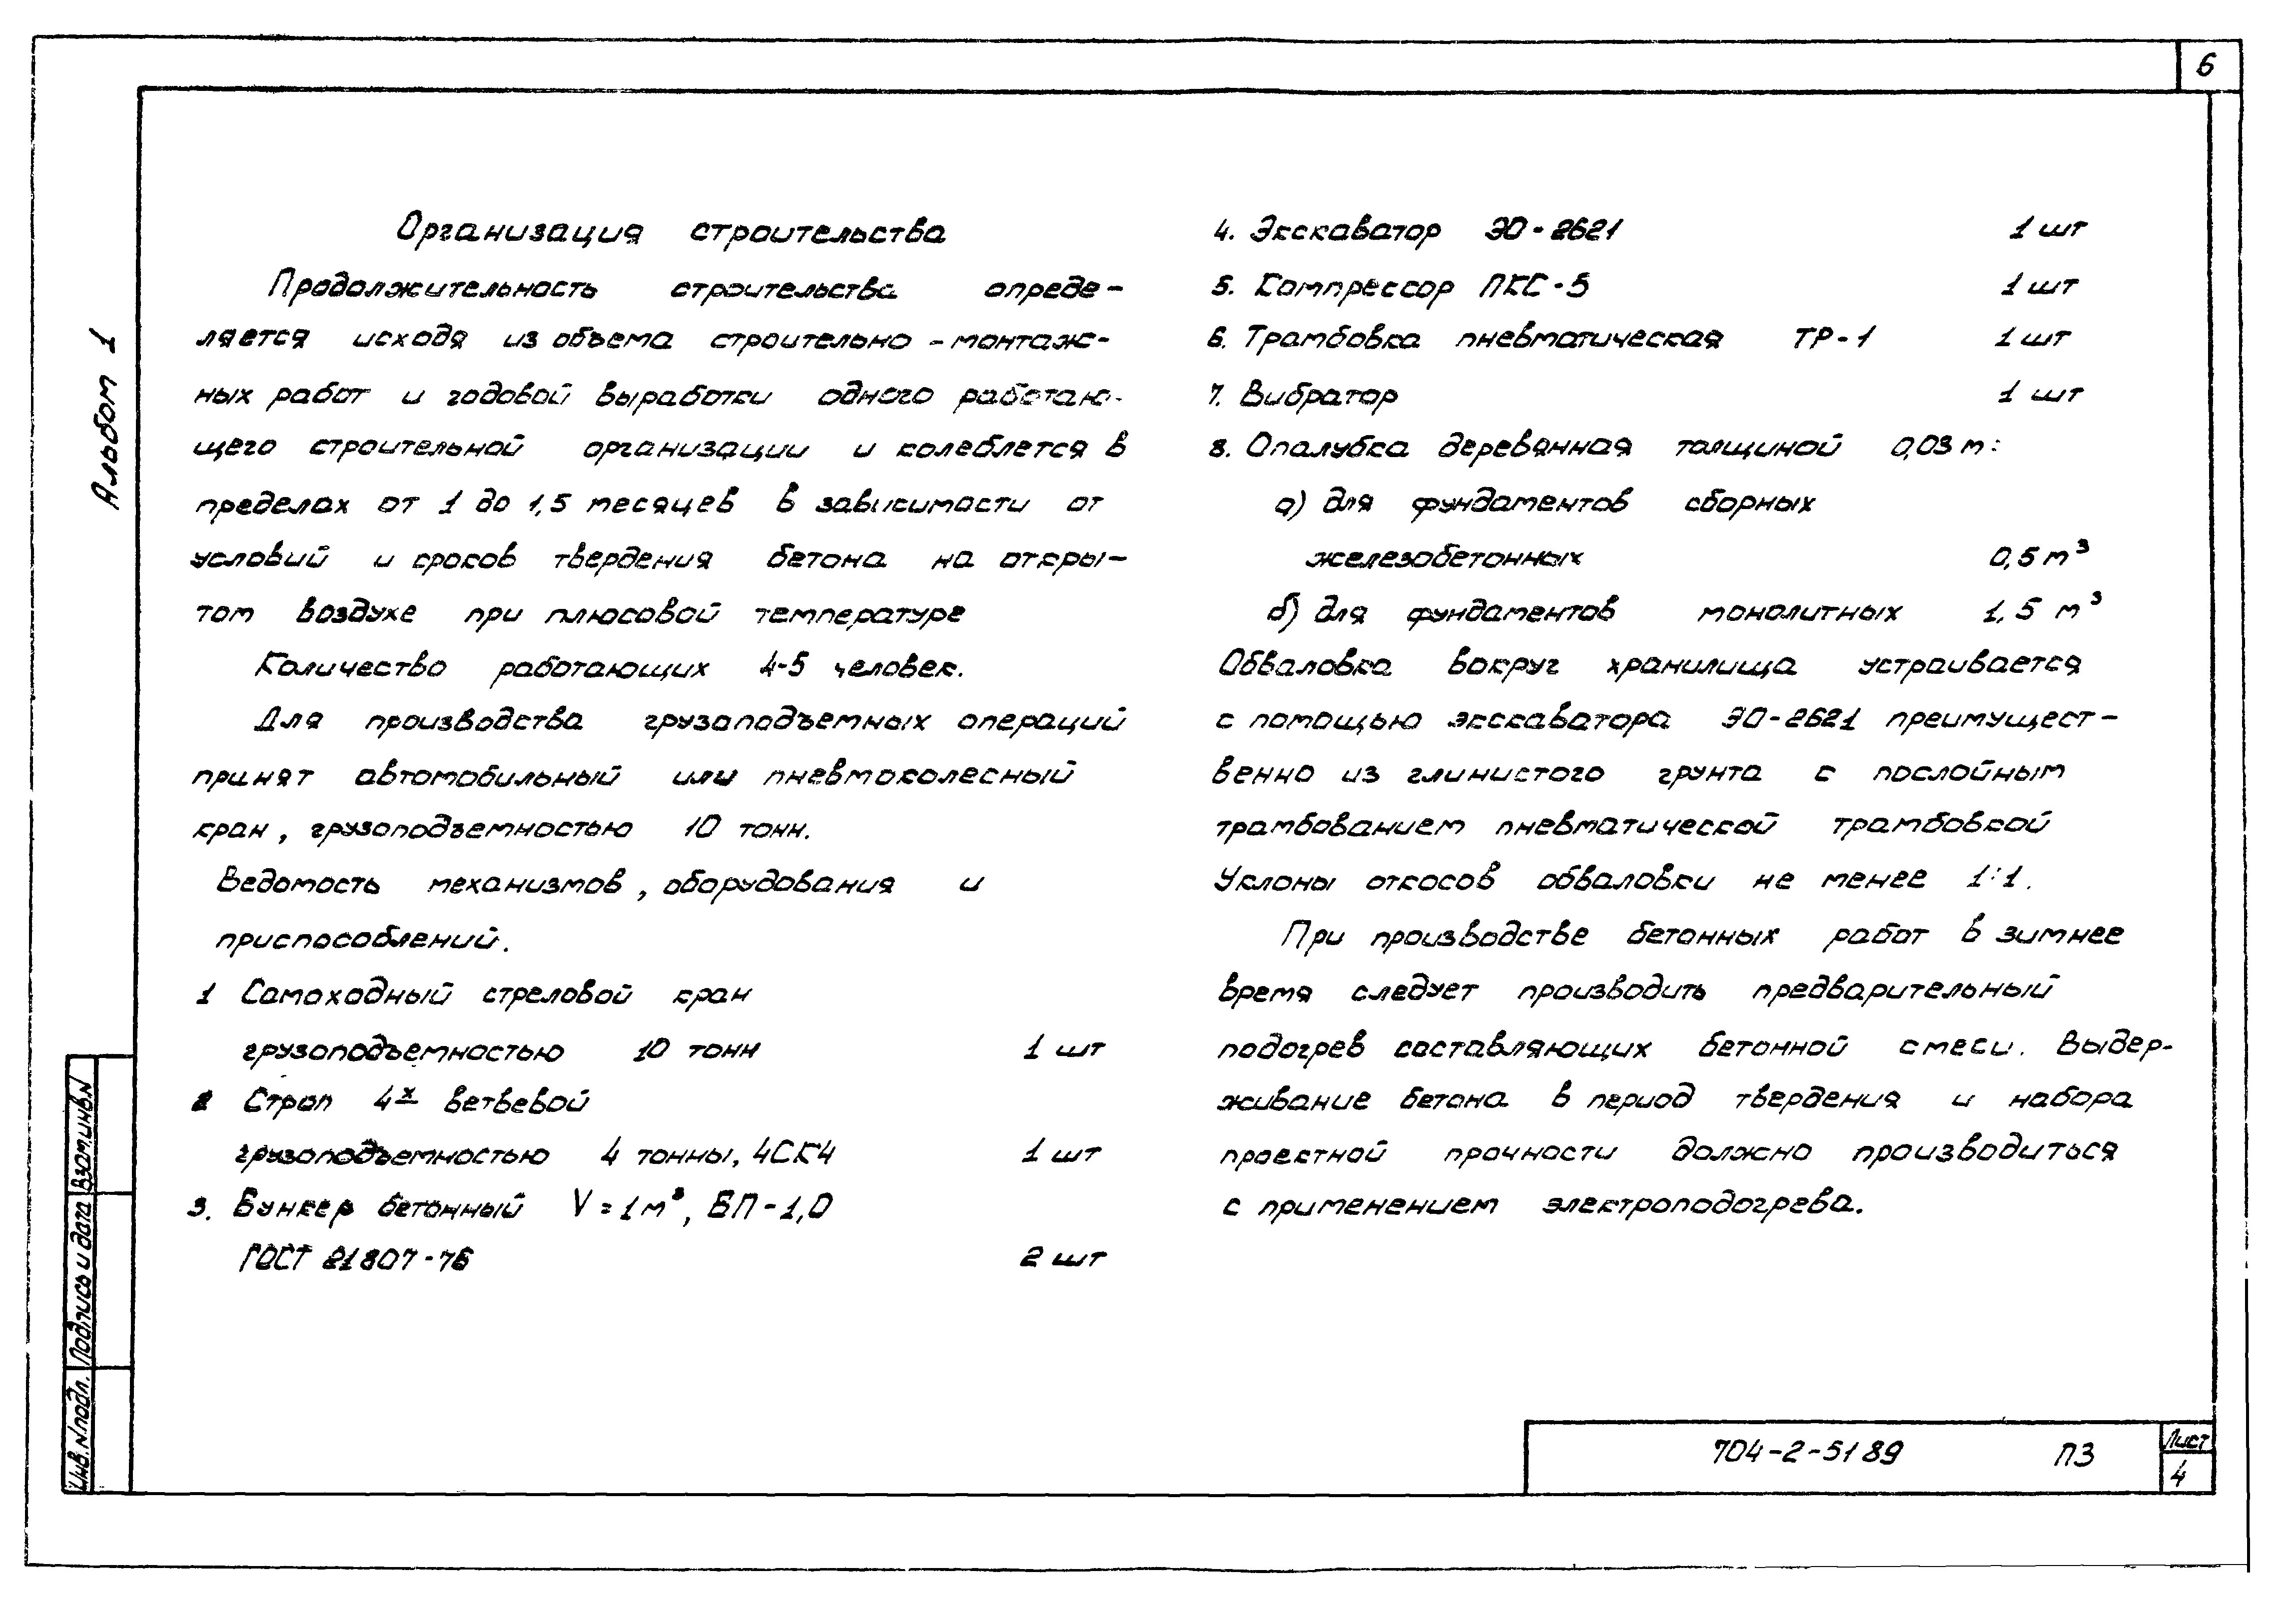 6
Альбом 1
Организация строительства
Продолжительность строительства опреде-
ляется исходя из объема строительно-монтаж-
ных работ и годовой выработки одного работаю-
щего строительной организации и колеблется в
пределах от 1 до 1,5 месяцев в зависимости от
условий и сроков твердения бетона на откры-
том воздухе при плюсовой температуре
Количество работающих 4-5 человек.
Для производства грузоподъемных операций
принят автомобильный или пневмоколесный
кран, грузоподъемностью 10 тонн.
Ведомость механизмов, оборудования и
приспособлений.
1 Самоходный стреловой кран
грузоподъемностью 10 тонн 1 шт
2 Строп 4х ветвевой
грузоподъемностью 4 тонны, 4СК4 1 шт
3. Бункер бетонный V=1м³, БП-1,0
ГОСТ 21807-76 2 шт
4. Экскаватор ЭО-2621 1 шт
5. Компрессор ПКС-5 1 шт
6. Трамбовка пневматическая ТР-1 1 шт
7. Вибратор 1 шт
8. Опалубка деревянная толщиной 0,03 м:
а) для фундаментов сборных
железобетонных 0,5 м³
б) для фундаментов монолитных 1,5 м³
Обваловка вокруг хранилища устраивается
с помощью экскаватора ЭО-2621 преимущест-
венно из глинистого грунта с послойным
трамбованием пневматической трамбовкой
Уклоны откосов обваловки не менее 1:1.
При производстве бетонных работ в зимнее
время следует производить предварительный
подогрев составляющих бетонной смеси. Выдер-
живание бетона в период твердения и набора
проектной прочности должно производиться
с применением электроподогрева.
Взам.инв.N
Подпись и дата
Инв.N подл.
704-2-51 89 ПЗ
Лист
4